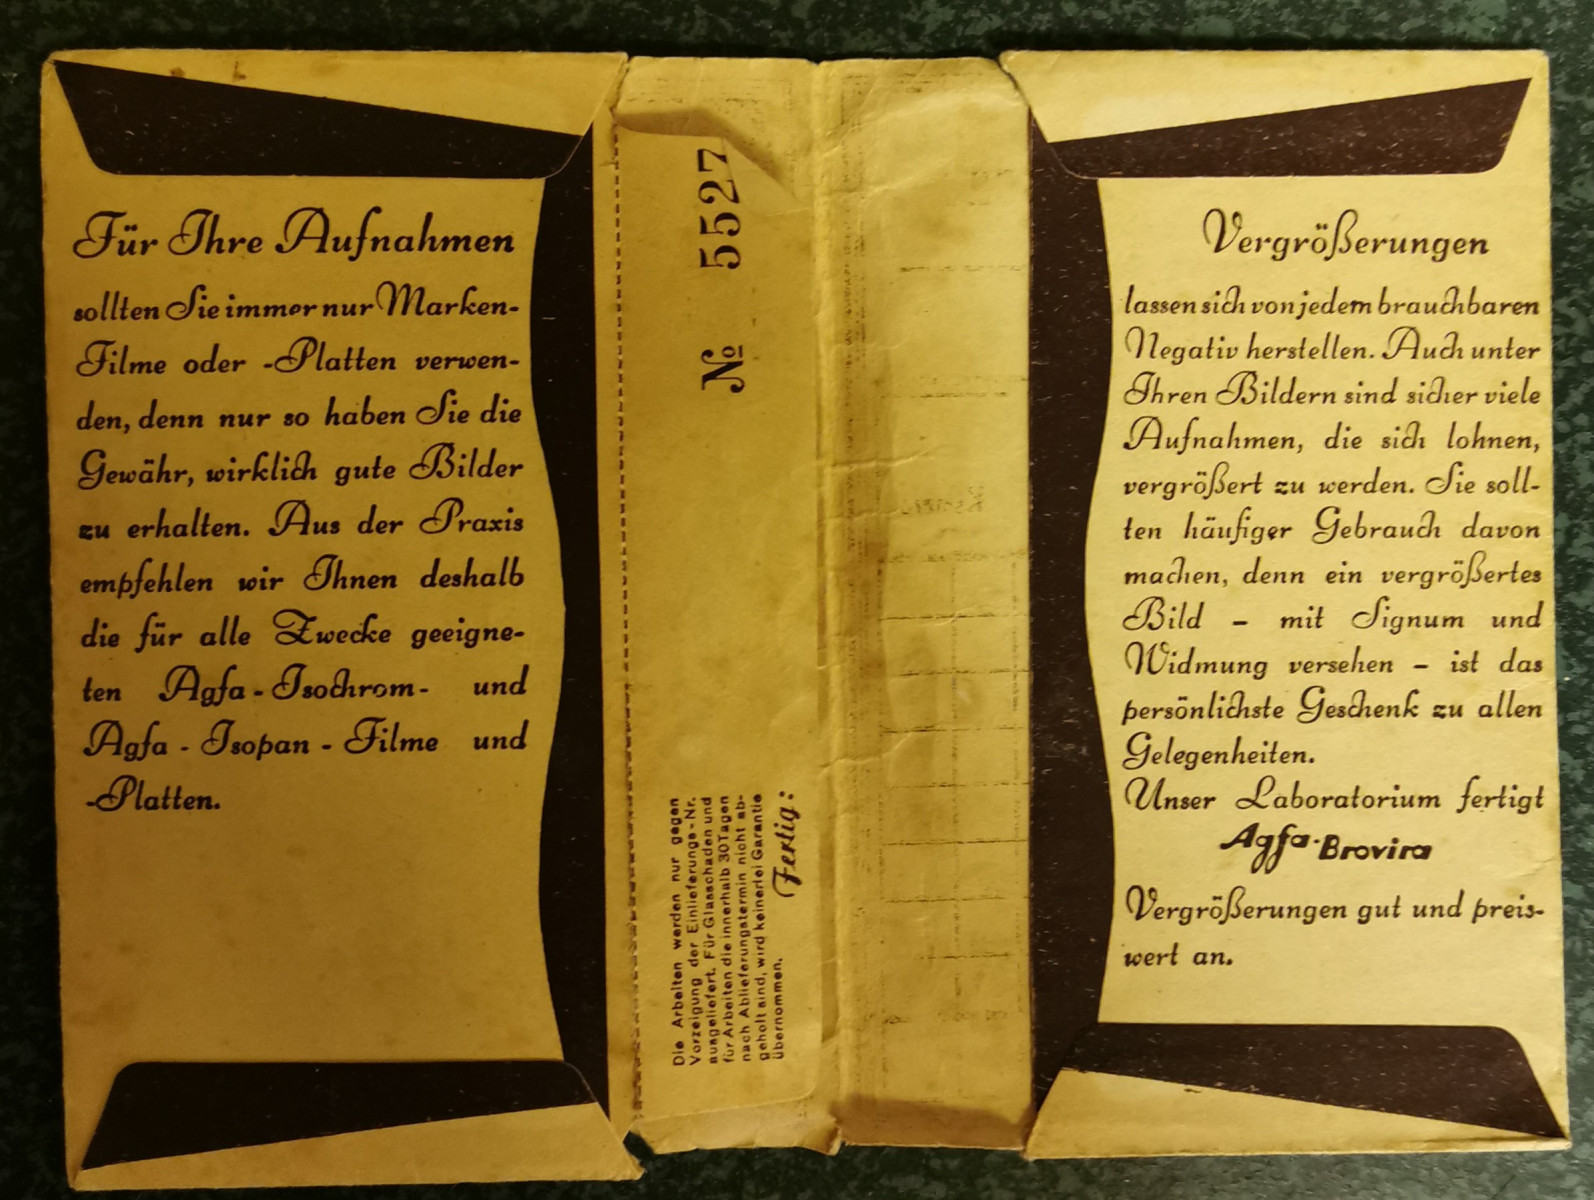 Für Ihre Aufnahmen
sollten Sie immer nur Marken-
Filme oder -Platten verwen-
den, denn nur so haben Sie die
Gewähr, wirklich gute Bilder
zu erhalten. Aus der Praxis
empfehlen wir Ihnen deshalb
die für alle Zwecke geeigne-
ten Agfa-Isochrom- und
Agfa-Isopan-Filme und
-Platten.
№ 5527
Die Arbeiten werden nur gegen
Vorzeigung der Einlieferungs-Nr.
ausgeliefert. Für Glasschaden und
für Arbeiten die innerhalb 30 Tagen
nach Ablieferungstermin nicht ab-
geholt sind, wird keinerlei Garantie
übernommen.
Fertig:
Vergrößerungen
lassen sich von jedem brauchbaren
Negativ herstellen. Auch unter
Ihren Bildern sind sicher viele
Aufnahmen, die sich lohnen,
vergrößert zu werden. Sie soll-
ten häufiger Gebrauch davon
machen, denn ein vergrößertes
Bild – mit Signum und
Widmung versehen – ist das
persönlichste Geschenk zu allen
Gelegenheiten.
Unser Laboratorium fertigt
Agfa-Brovira
Vergrößerungen gut und preis-
wert an.